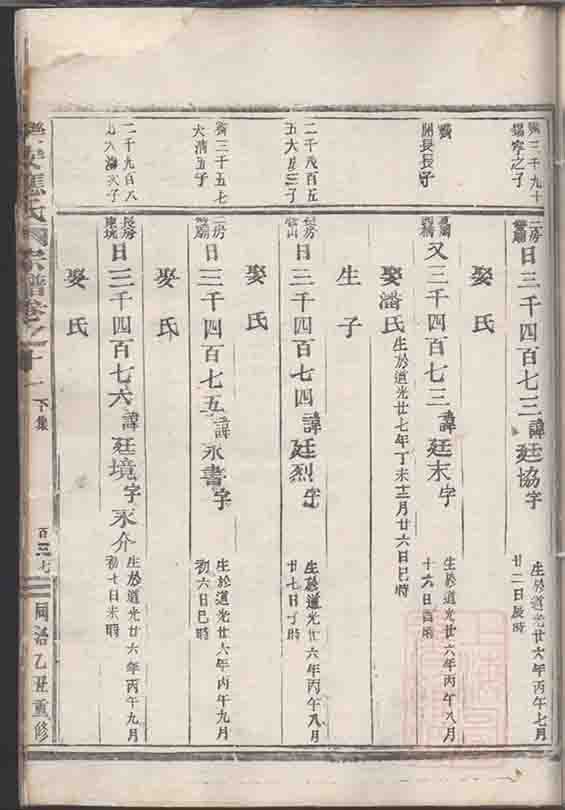 日三千四百七三諱廷協字
生於道光廿六年丙午七月
廿二日辰時
娶氏
開長長子
又三千四百七三諱廷末字
生於道光廿六年丙午八月
十六日酉時
娶潘氏
生於道光廿七年丁未十二月廿六日巳時
生子
二千九百五
日三千四百七四諱廷烈字
生於道光廿六年丙午八月
廿七日丁時
娶氏
日三千四百七五諱永書字
生於道光廿六年丙午九月
初六日巳時
娶氏
二千九百八
長房
日三千四百七六諱廷境字永介
生於道光廿六年丙午九月
初七日未時
娶氏
氏
宗譜卷之十一
下集
同治乙丑重修